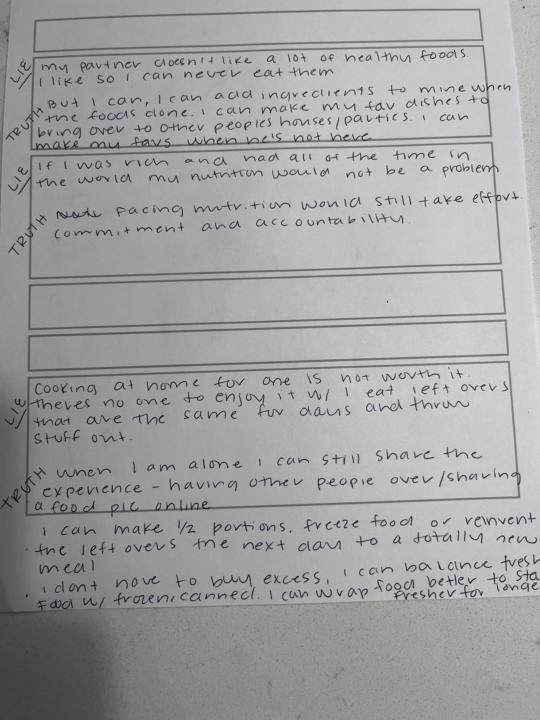 LIE
my partner doesn't like a lot of healthy foods
I like so I can never eat them
TRUTH
But I can, I can add ingredients to mine when
the foods done. I can make my fav dishes to
bring over to other peoples houses/parties. I can
make my favs when he's not here
LIE
If I was rich and had all of the time in
the world my nutrition would not be a problem
TRUTH
Facing nutrition would still take effort
commitment and accountability.
LIE
Cooking at home for one is not worth it.
theres no one to enjoy it w/ I eat left overs
that are the same for days and throw
stuff out.
TRUTH
when I am alone I can still share the
experience - having other people over/sharing
a food pic online
I can make 1/2 portions. freeze food or reinvent
the left overs the next day to a totally new
meal
I dont have to buy excess, I can balance fresh
food w/ frozen/canned. I can wrap food better to sta
fresher for longe